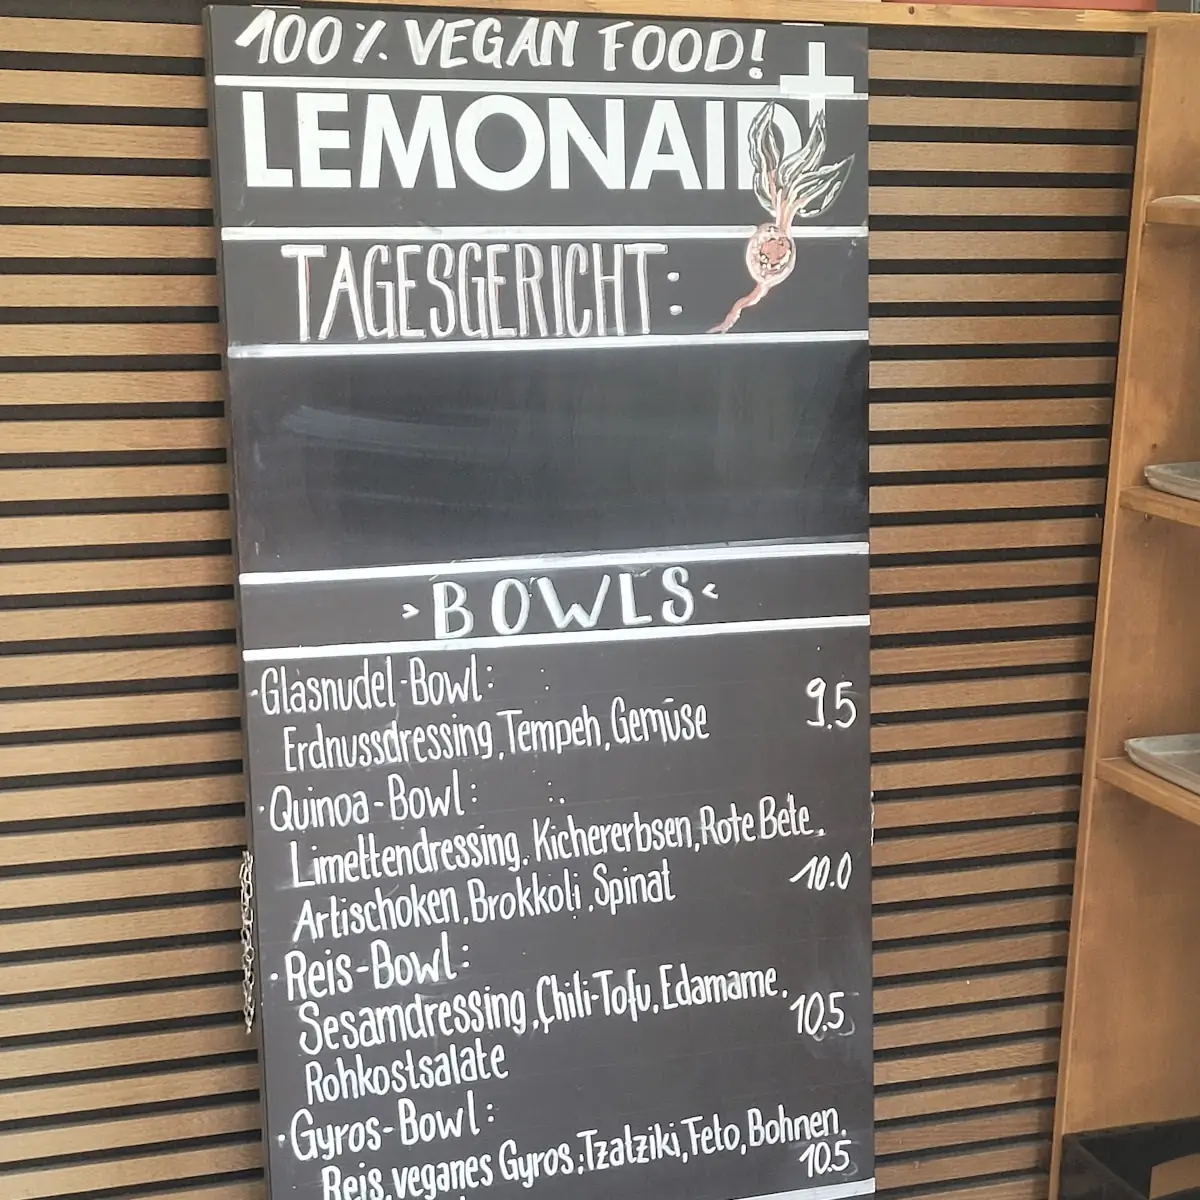 100% VEGAN FOOD!
LEMONAID+
TAGESGERICHT:
>BOWLS<
·Glasnudel-Bowl:
Erdnussdressing, Tempeh, Gemüse 9.5
·Quinoa-Bowl:
Limettendressing, Kichererbsen, Rote Bete,
Artischoken, Brokkoli, Spinat 10.0
·Reis-Bowl:
Sesamdressing, Chili-Tofu, Edamame,
Rohkostsalate 10.5
·Gyros-Bowl:
Reis, veganes Gyros, Tzatziki, Feto, Bohnen,
10.5